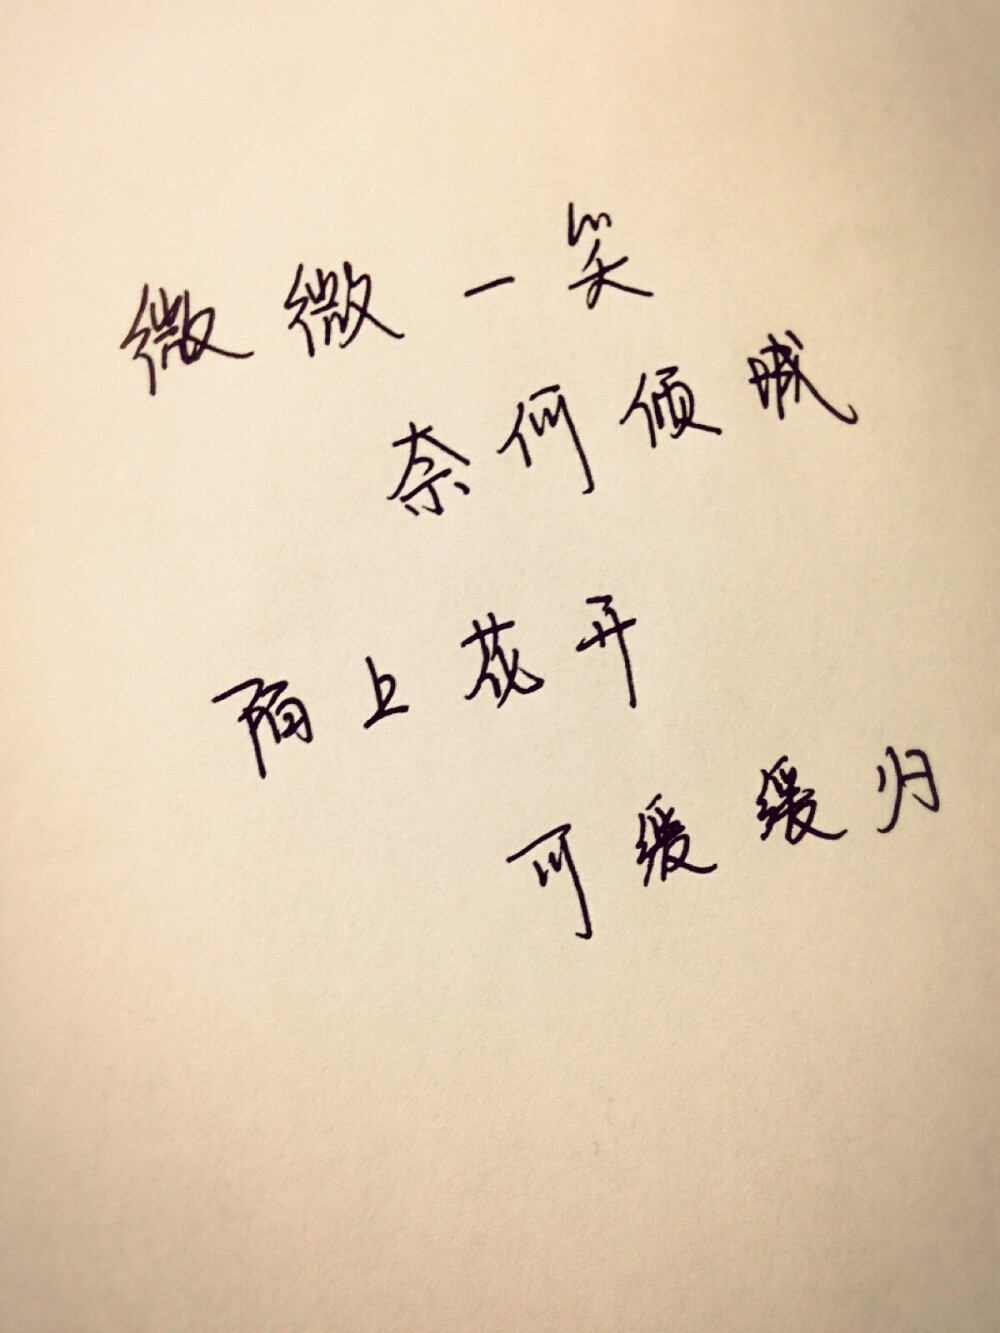 微微一笑
奈何倾城
陌上花开
可缓缓归